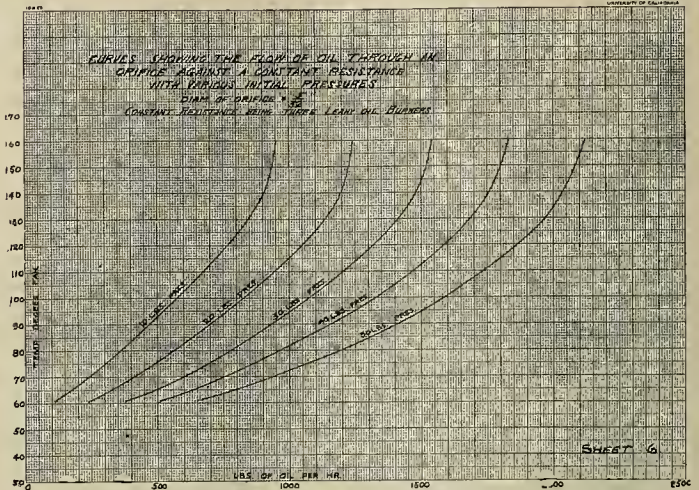 UNIVERSITY OF CALIFORNIA
CURVES SHOWING THE FLOW OF OIL THROUGH AN
ORIFICE AGAINST A CONSTANT RESISTANCE
WITH VARIOUS INITIAL PRESSURES
DIAM OF ORIFICE
CONSTANT RESISTANCE BEING THREE LEAKY OIL BURNERS
170
160
150
140
130
120
110
100
90
80
70
60
50
40
30
TEMP. DEGREES FAH.
10 LBS. PRES.
20 LBS. PRES.
30 LBS. PRES.
40 LBS PRES.
50 LBS. PRES.
SHEET 6
LBS. OF OIL PER HR.
0
500
1000
1500
2000
2500